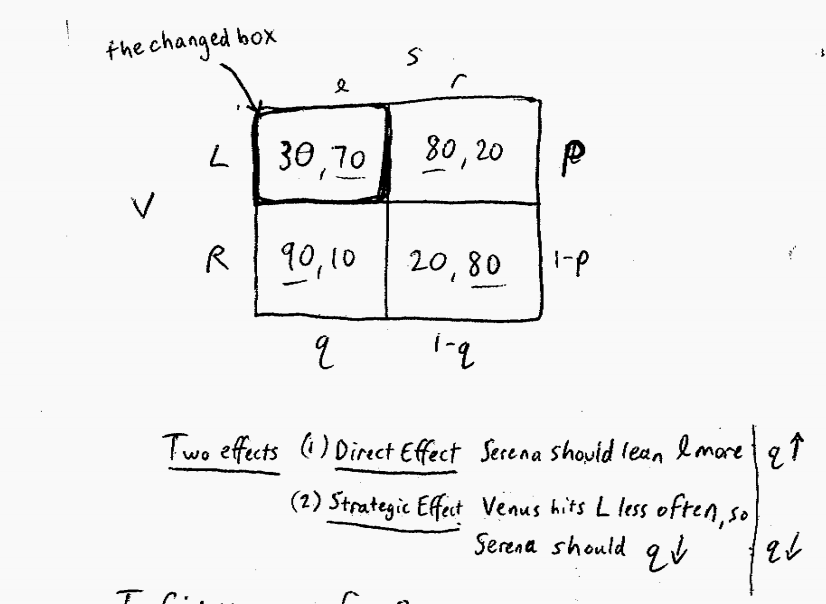 the changed box
S
l r
L 30,70 80,20 p
V
R 90,10 20,80 1-p
q 1-q
Two effects (1) Direct Effect Serena should lean l more q↑
(2) Strategic Effect Venus hits L less often, so
Serena should q↓ q↓